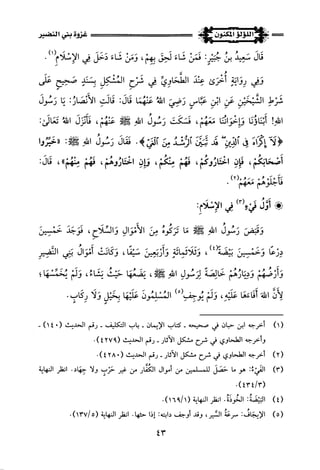 اللؤلؤ المكنون
غزوة بني النضير
قَالَ سَعِيدُ بنُ جُبَيْرٍ: فَمَنْ شَاءَ لَحِقَ بِهِمْ، وَمَنْ شَاءَ دَخَلَ فِي الإِسْلَامِ(١).
وَفِي رِوَايَةٍ أُخْرَى عِنْدَ الطَّحَاوِيِّ فِي شَرْحِ المُشْكِلِ بِسَنَدٍ صَحِيحٍ عَلَى
شَرْطِ الشَّيْخَيْنِ عَنِ ابْنِ عَبَّاسٍ رَضِيَ اللهُ عَنْهُمَا قَالَ: قَالَتِ الأَنْصَارُ: يَا رَسُولَ
اللهِ! أَبْنَاؤُنَا وَإِخْوَانُنَا مَعَهُمْ، فَسَكَتَ رَسُولُ اللهِ ﷺ عَنْهُمْ، فَأَنْزَلَ اللهُ تَعَالَى:
﴿لَآ إِكْرَاهَ فِي الدِّينِ قَد تَّبَيَّنَ الرُّشْدُ مِنَ الْغَيِّ﴾. فَقَالَ رَسُولُ اللهِ ﷺ: «خَيِّرُوا
أَصْحَابَكُمْ، فَإِنِ اخْتَارُوكُمْ، فَهُمْ مِنْكُمْ، وَإِنِ اخْتَارُوهُمْ، فَهُمْ مِنْهُمْ»، قَالَ:
فَأَجْلَوْهُمْ مَعَهُمْ(٢).
أَوَّلُ فَيْءٍ(٣) فِي الإِسْلَامِ:
وَقَبَضَ رَسُولُ اللهِ ﷺ مَا تَرَكُوهُ مِنَ الأَمْوَالِ وَالسِّلَاحِ، فَوَجَدَ خَمْسِينَ
دِرْعًا وَخَمْسِينَ بَيْضَةً(٤)، وَثَلَاثَمِائَةٍ وَأَرْبَعِينَ سَيْفًا، وَكَانَتْ أَمْوَالُ بَنِي النَّضِيرِ
وَأَرْضُهُمْ وَدِيَارُهُمْ خَالِصَةً لِرَسُولِ اللهِ ﷺ، يَضَعُهَا حَيْثُ يَشَاءُ، وَلَمْ يُخَمِّسْهَا؛
لِأَنَّ اللهَ أَفَاءَهَا عَلَيْهِ، وَلَمْ يُوجِفِ(٥) المُسْلِمُونَ عَلَيْهَا بِخَيْلٍ وَلَا رِكَابٍ.
(١) أخرجه ابن حبان في صحيحه ـ كتاب الإيمان ـ باب التكليف ـ رقم الحديث (١٤٠) ـ
وأخرجه الطحاوي في شرح مشكل الآثار ـ رقم الحديث (٤٢٧٩).
(٢) أخرجه الطحاوي في شرح مشكل الآثار ـ رقم الحديث (٤٢٨٠).
(٣) الفَيْءُ: هو ما حَصَلَ للمسلمين من أموال الكُفَّار من غير حَرْبٍ ولا جِهَاد. انظر النهاية
(٤٣٤/٣).
(٤) البَيْضَةُ: الخُوذَةُ. انظر النهاية (١٦٩/١).
(٥) الإيجَافُ: سرعَةُ السَّيرِ، وقد أوجف دابته: إذا حثها. انظر النهاية (١٣٧/٥).
٤٣